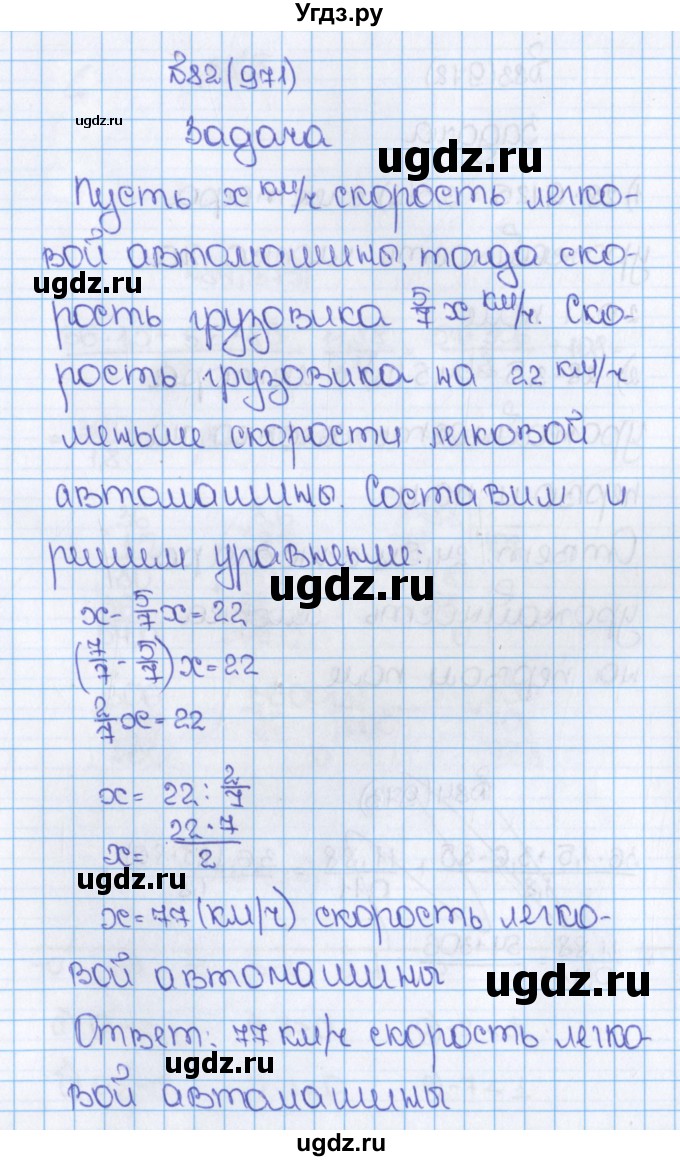 Угдз.ру
В82(971)
ugdz.ru
Задача
ugdz.ru
Пусть x км/ч скорость легко-
вой автомашины, тогда ско-
ugdz.ru
рость грузовика 5/7 x км/ч. Ско-
рость грузовика на 22 км/ч
меньше скорости легковой
автомашины. Составим и
решим уравнение:
ugdz.ru
x - 5/7 x = 22
(7/7 - 5/7) x = 22
2/7 x = 22
x = 22 : 2/7
x = 22·7/2
ugdz.ru
x = 77 (км/ч) скорость легко-
вой автомашины
ugdz.ru
Ответ: 77 км/ч скорость легко-
ugdz.ru
вой автомашины
ugdz.ru